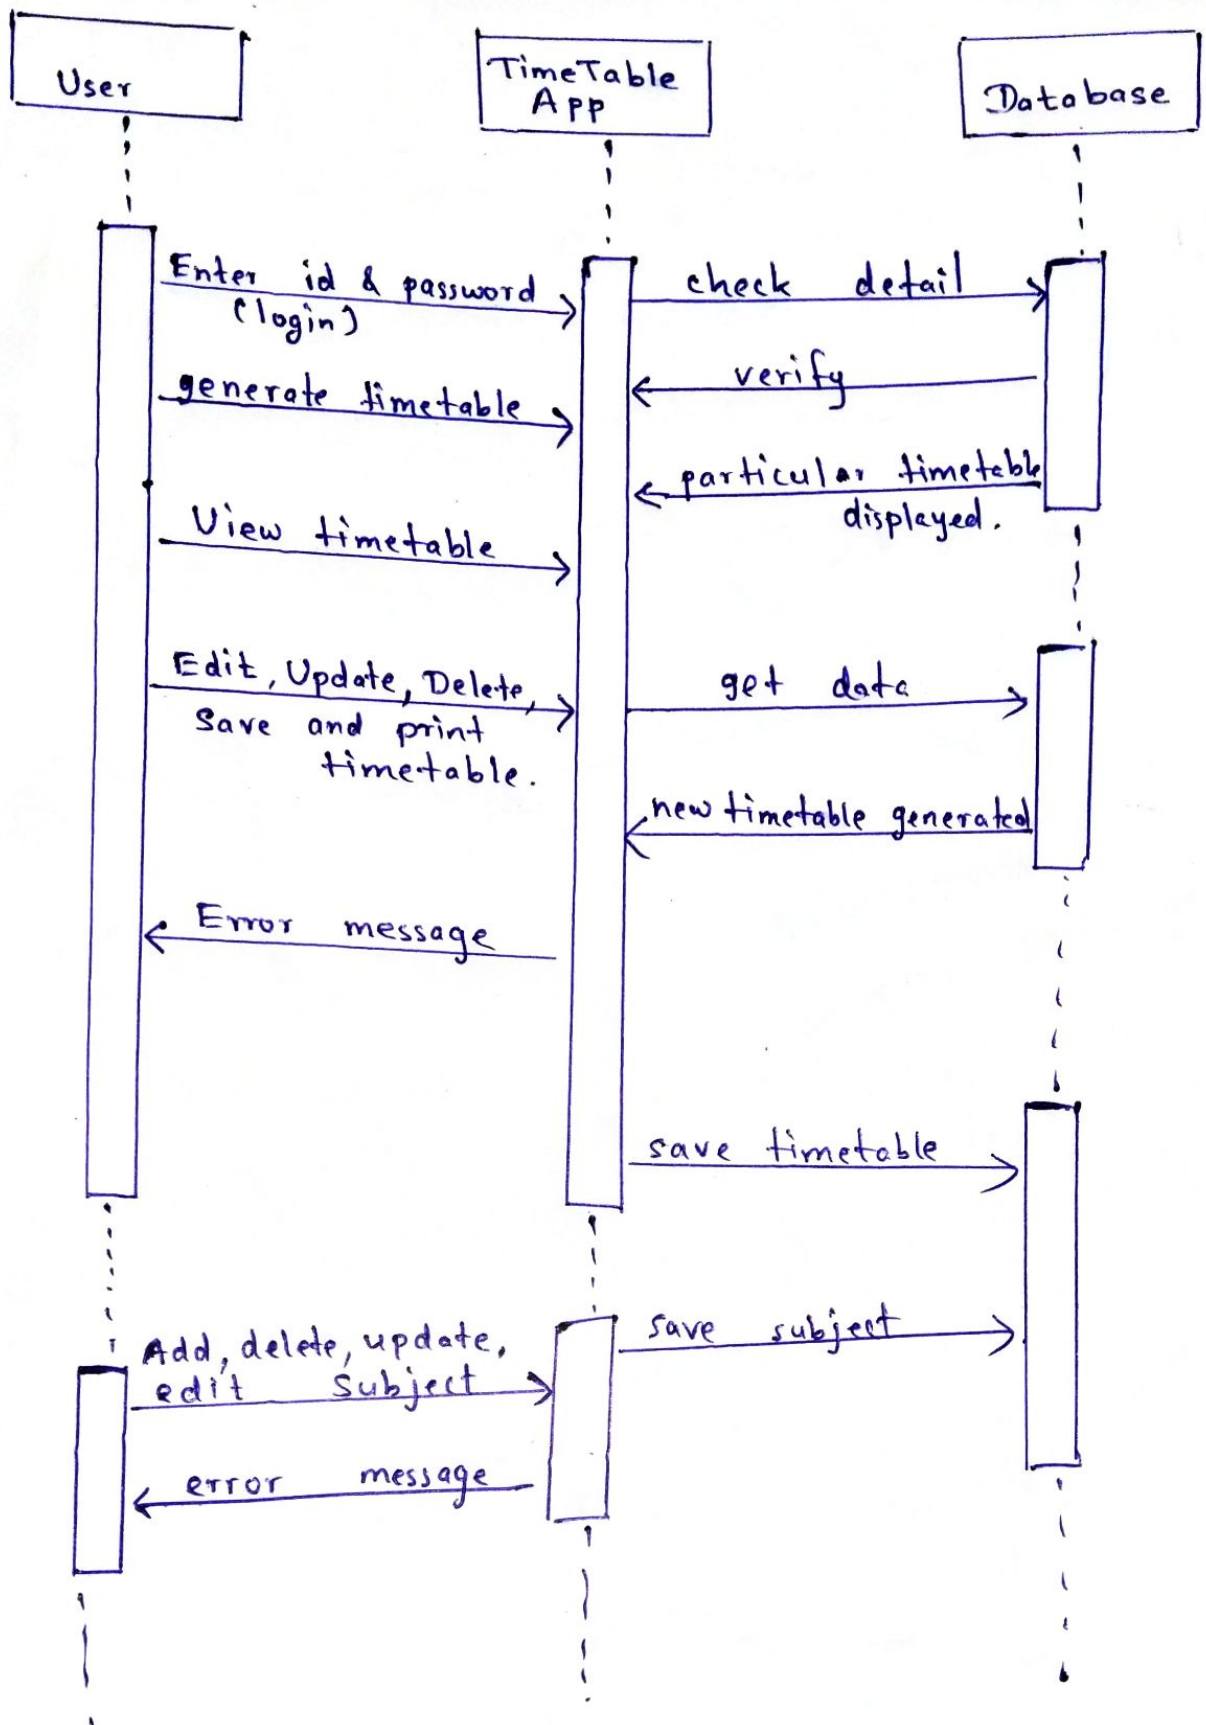 User
TimeTable
App
Database
Enter id & password
(login)
check detail
generate timetable
verify
particular timetable
displayed.
View timetable
Edit, Update, Delete,
Save and print
timetable.
get data
new timetable generated
Error message
save timetable
save subject
Add, delete, update,
edit Subject
error message